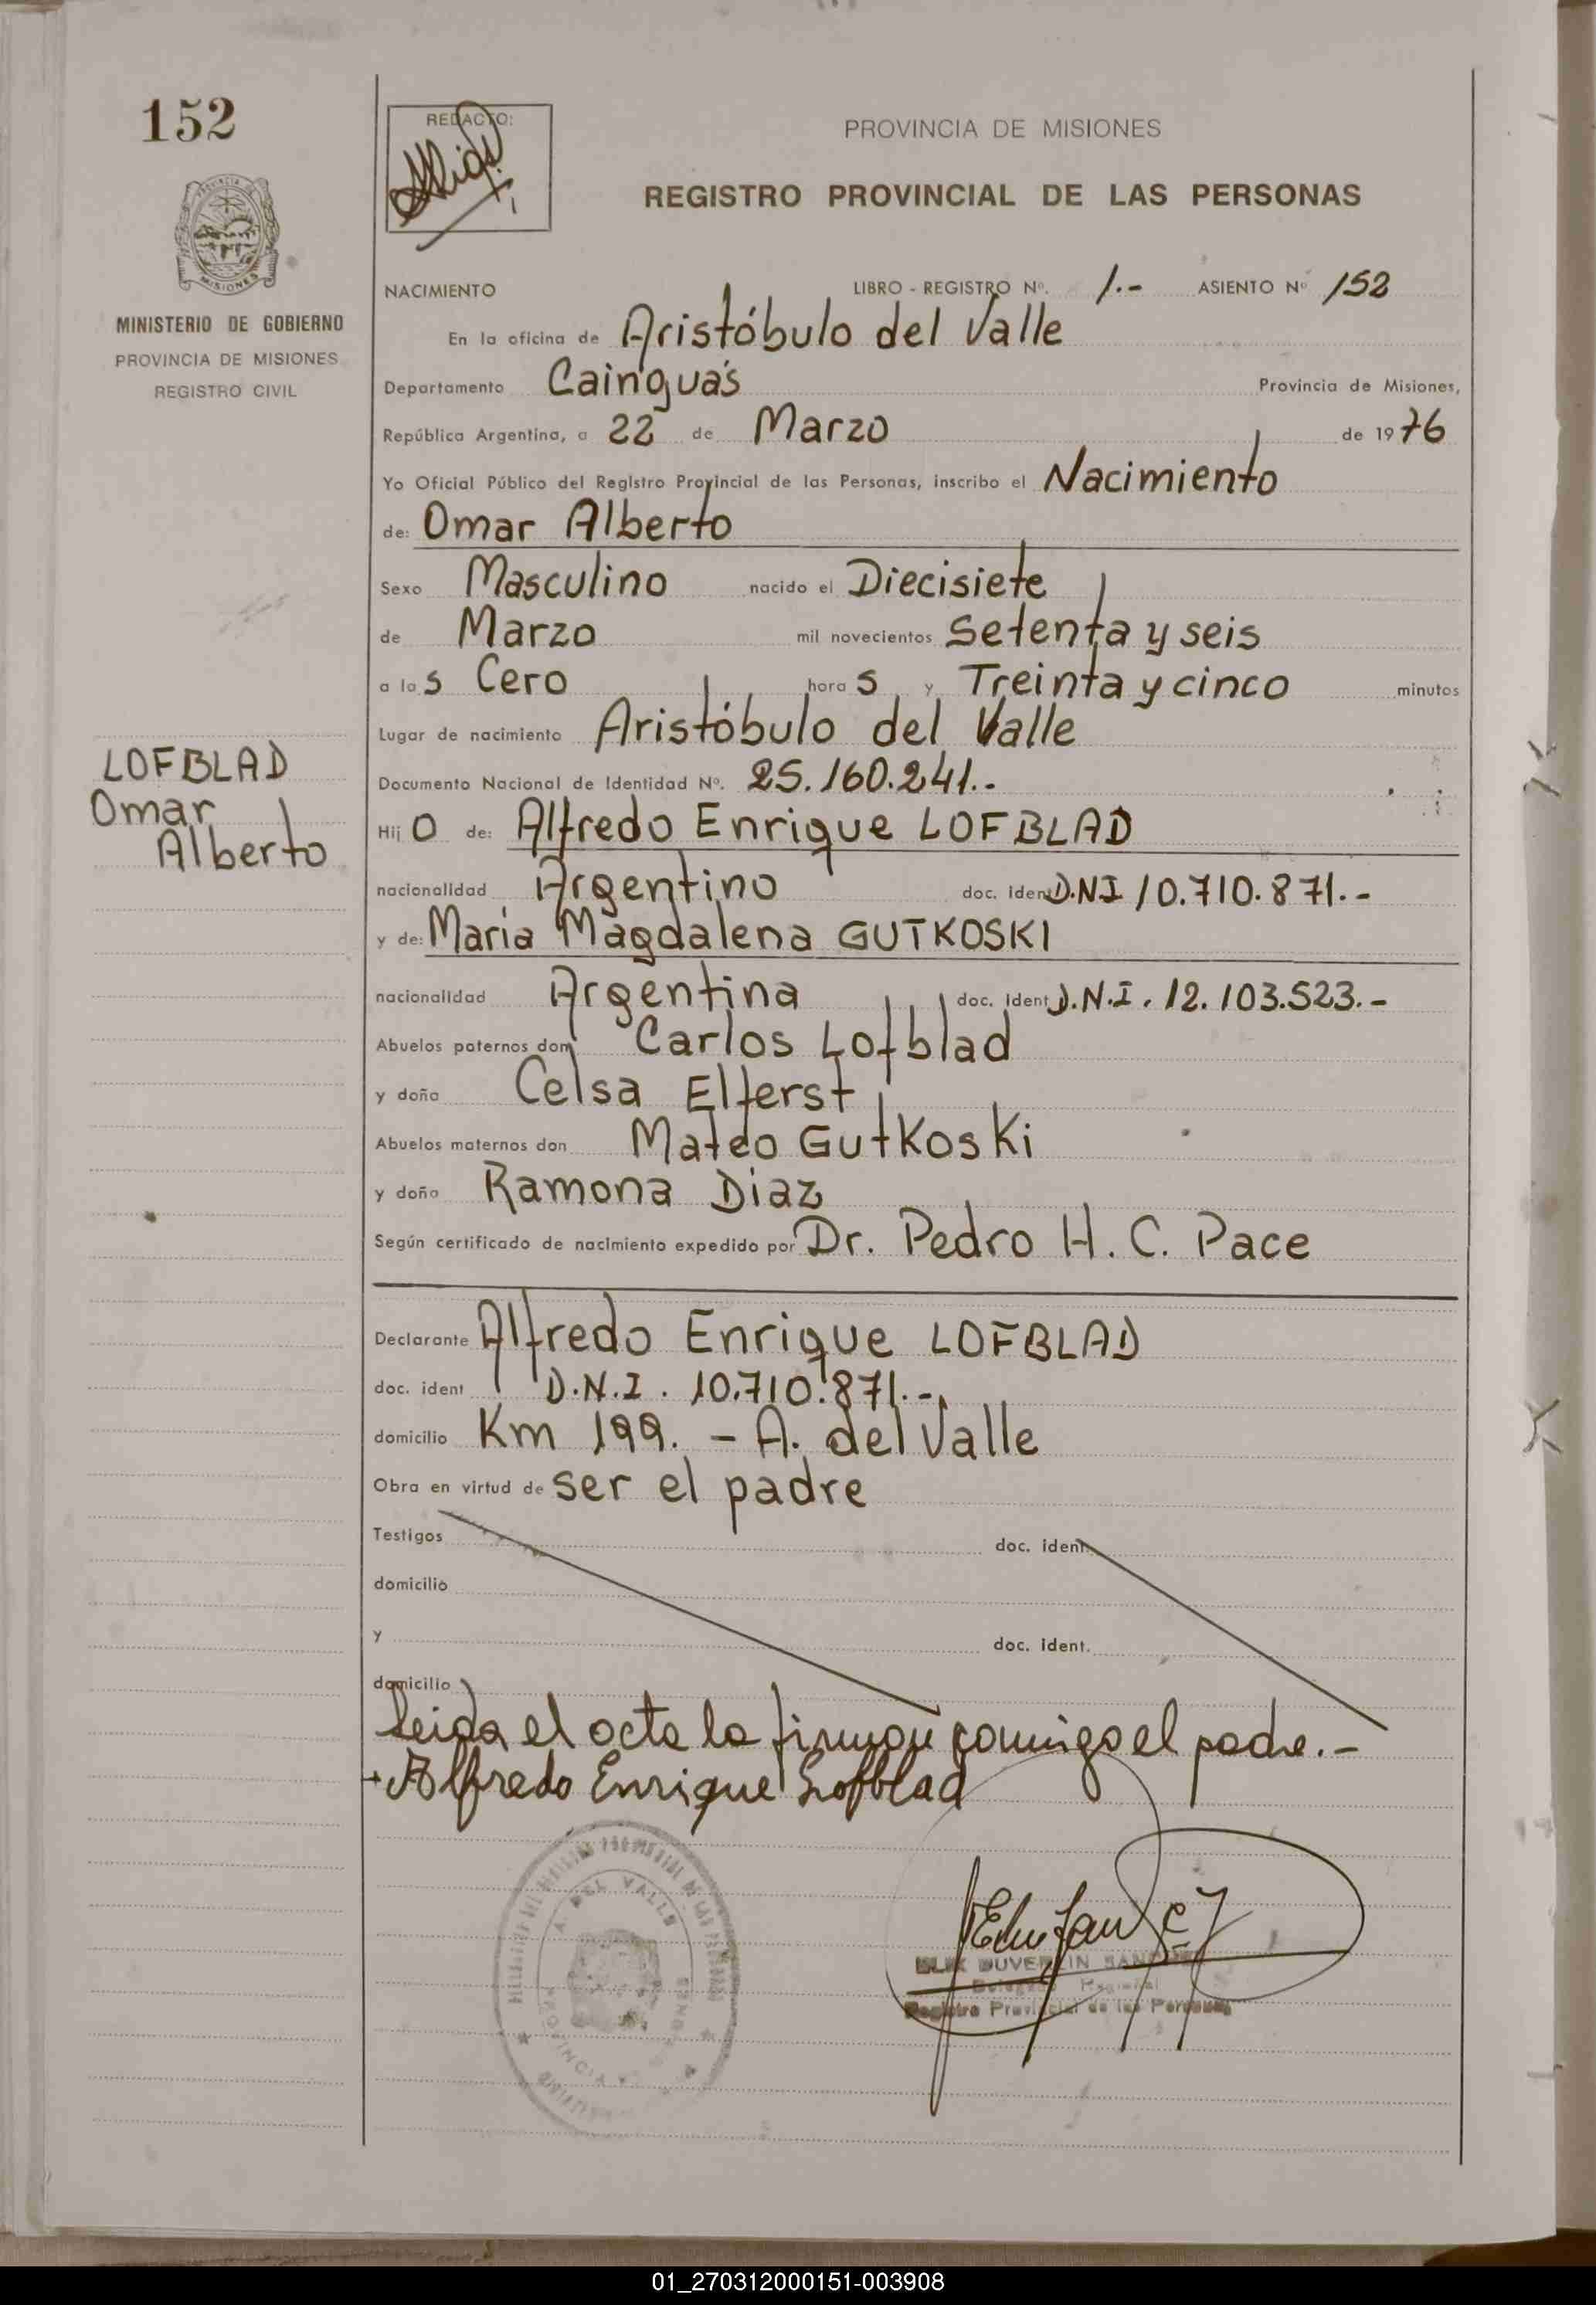 152
REDACTO:
PROVINCIA DE MISIONES
REGISTRO PROVINCIAL DE LAS PERSONAS
MISIONES
MINISTERIO DE GOBIERNO
PROVINCIA DE MISIONES
REGISTRO CIVIL
LOFBLAD
Omar
Alberto
NACIMIENTO LIBRO - REGISTRO Nº. 1.- ASIENTO Nº 152
En la oficina de Aristóbulo del Valle
Departamento Cainguás Provincia de Misiones,
República Argentina, a 22 de Marzo de 1976
Yo Oficial Público del Registro Provincial de las Personas, inscribo el Nacimiento
de: Omar Alberto
Sexo Masculino nacido el Diecisiete
de Marzo mil novecientos Setenta y seis
a las Cero horas y Treinta y cinco minutos
Lugar de nacimiento Aristóbulo del Valle
Documento Nacional de Identidad Nº. 25.160.241.-
Hijo de: Alfredo Enrique LOFBLAD
nacionalidad Argentino doc. ident D.NI 10.710.871.-
y de: María Magdalena GUTKOSKI
nacionalidad Argentina doc. ident D.N.I. 12.103.523.-
Abuelos paternos don Carlos Lofblad
y doña Celsa Elferst
Abuelos maternos don Mateo Gutkoski
y doña Ramona Diaz
Según certificado de nacimiento expedido por Dr. Pedro H. C. Pace
Declarante Alfredo Enrique LOFBLAD
doc. ident D.N.I. 10.710.871.-
domicilio Km 199. - A. del Valle
Obra en virtud de ser el padre
Testigos doc. ident.
domicilio
y doc. ident.
domicilio
Leida el acta la firman comigo el padre.-
Alfredo Enrique Lofblad
A. DEL VALLE
PROVINCIA
Registro Provincial de las Personas
01_270312000151-003908